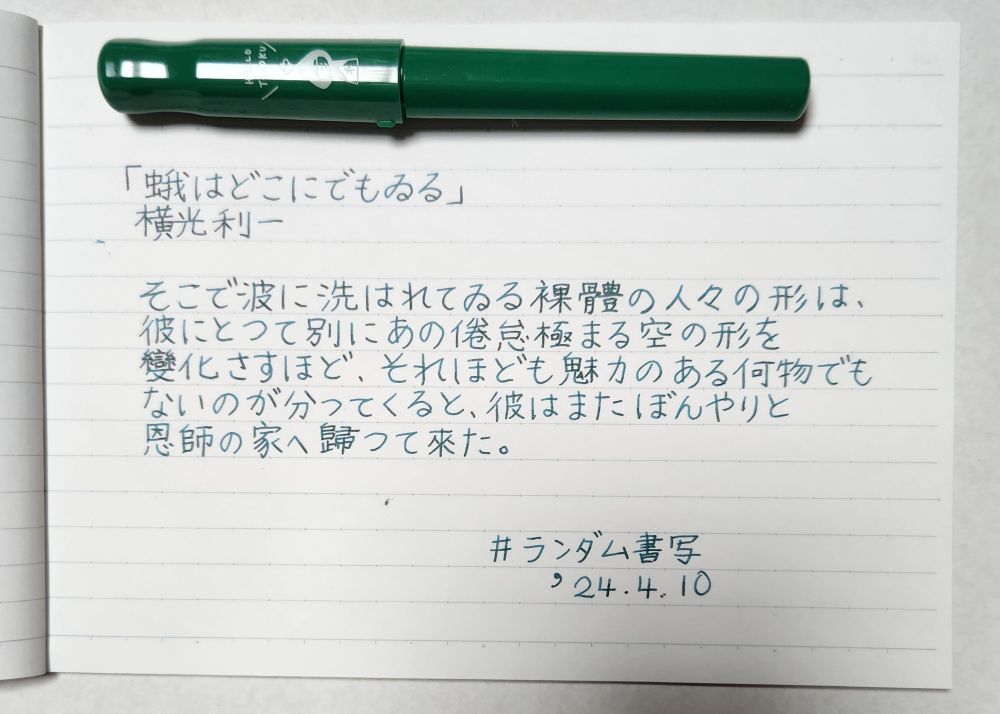 HELLO
TOHOKU
「蛾はどこにでもゐる」
横光利一
そこで波に洗はれてゐる裸體の人々の形は、
彼にとつて別にあの倦怠極まる空の形を
變化さすほど、それほども魅力のある何物でも
ないのが分ってくると、彼はまたぼんやりと
恩師の家へ歸つて來た。
#ランダム書写
’24.4.10